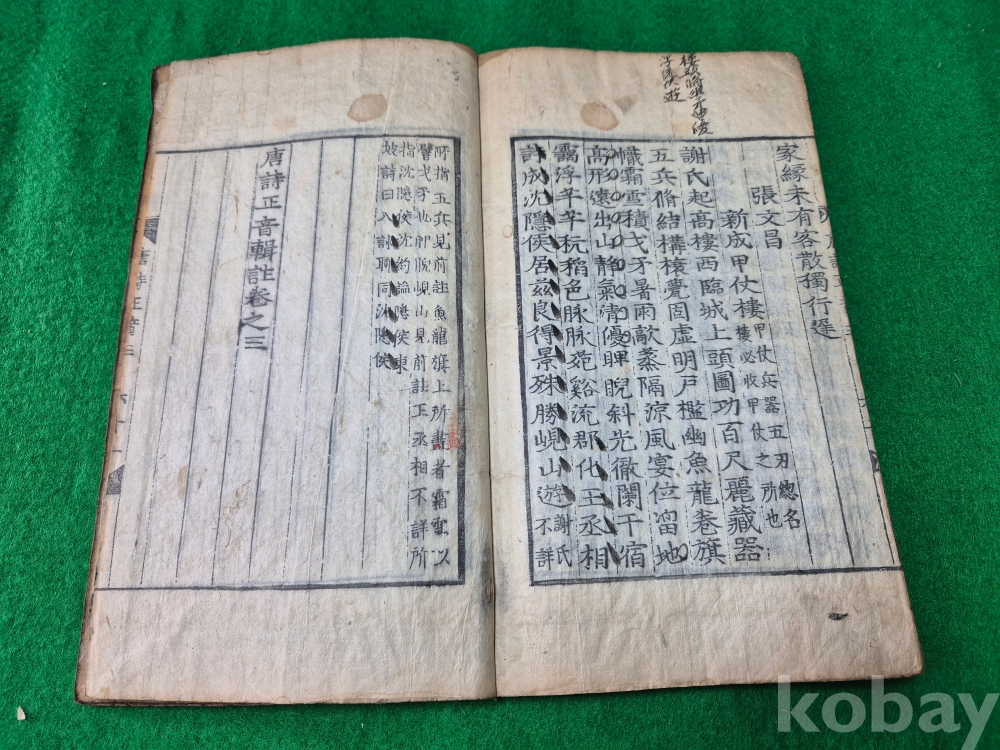 家緣未有客散獨行遲
張文昌
新成甲仗樓甲仗兵器五刃總名
樓必收甲仗之所也
謝氏起高樓西臨城上頭圖功百尺麗藏器
五兵脩結構榱甍固虛明戶檻幽魚龍卷旗
幟霜雪積戈矛暑雨歊蒸隔涼風宴位留地
高形遠出山靜氣清優睥睨斜光徹闌干宿
靄浮芊芊秔稻色脉脉苑谿流郡化王丞相
詩成沈隱侯居茲良得景殊勝峴山遊謝氏
不詳
所指五兵見前註魚龍旗上所畫者霜雪以
譬戈矛也睥睨峴山見前註王丞相不詳所
指沈隱侯沈約謚隱侯東
坡詩曰入詠聊同沈隱侯
唐詩正音輯註卷之三
唐詩正音三
六十一
kobay